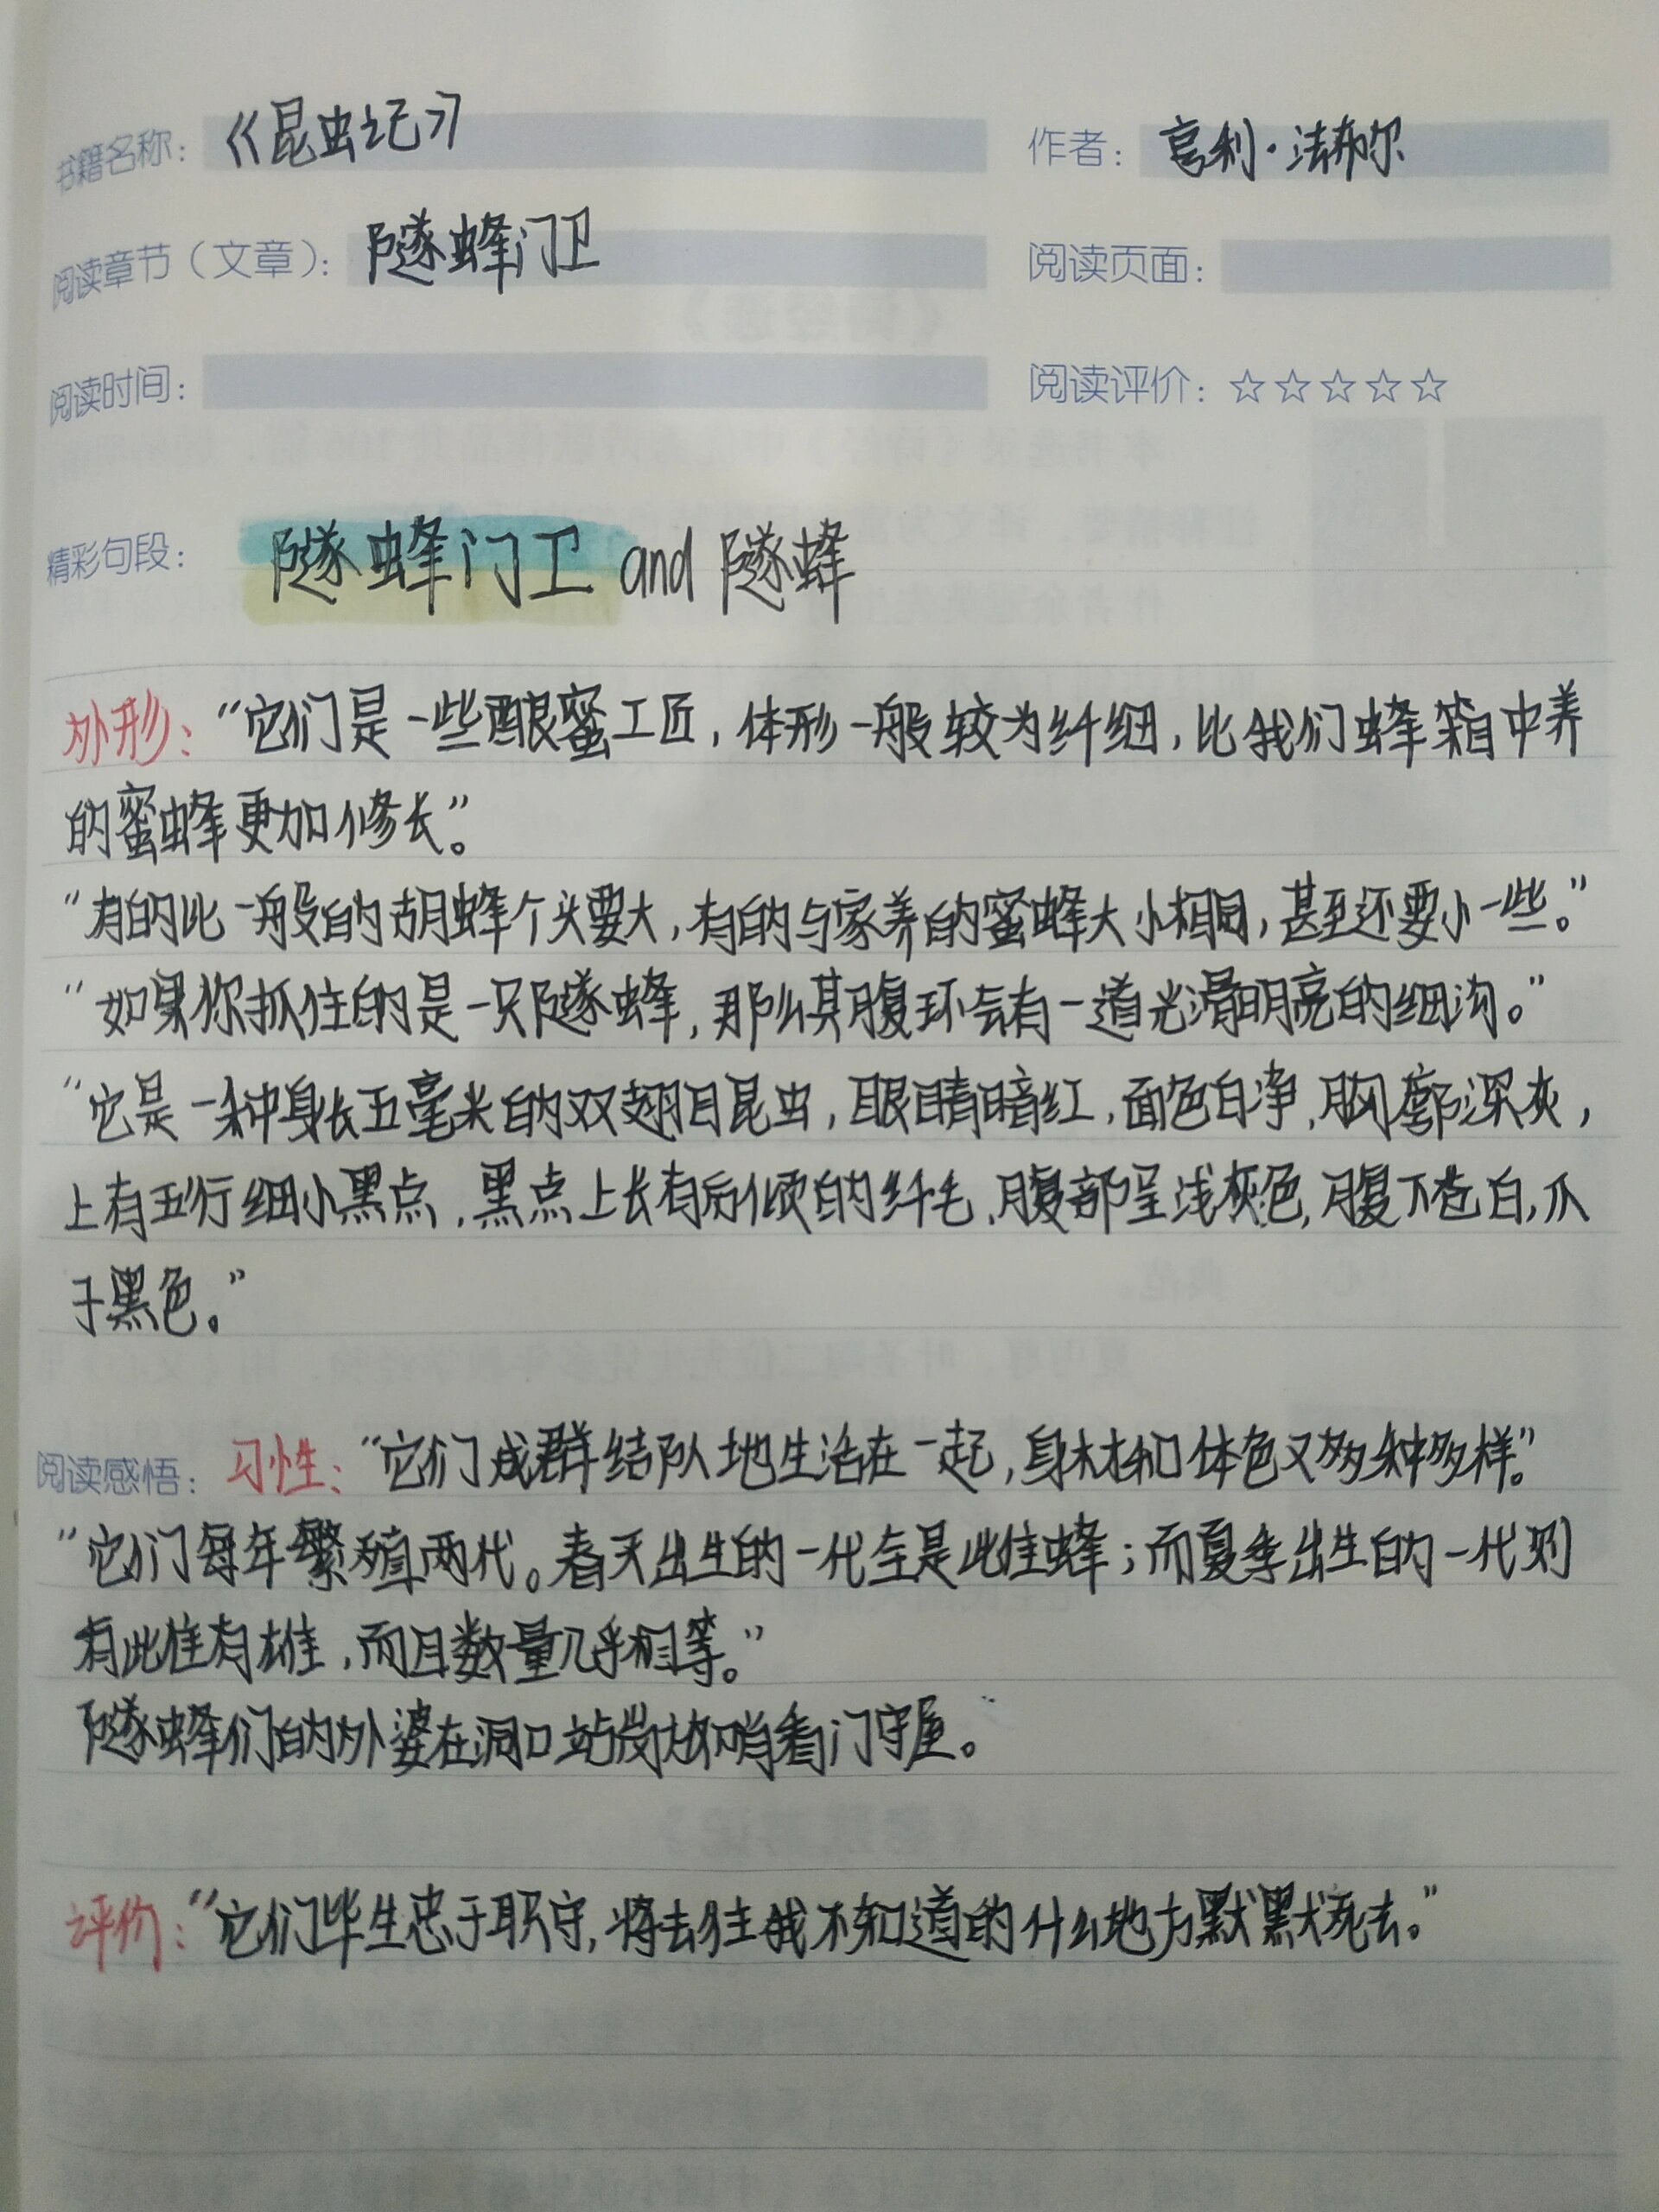 书籍名称：《昆虫记》 作者：亨利·法布尔
阅读章节（文章）：隧蜂门卫 阅读页面：
阅读时间： 阅读评价：☆☆☆☆☆
精彩句段： 隧蜂门卫 and 隧蜂
外形：“它们是一些酿蜜工匠，体形一般较为纤细，比我们蜂箱中养
的蜜蜂更加修长”。
“有的比一般的胡蜂个头要大，有的与家养的蜜蜂大小相同，甚至还要小一些。”
“如果你抓住的是一只隧蜂，那么其腹环会有一道光滑明亮的细沟。”
“它是一种身长五毫米的双翅目昆虫，眼睛暗红，面色白净，胸廓深灰，
上有五行细小黑点，黑点上长有后倾的纤毛，腹部呈浅灰色，腹下苍白，爪
子黑色。”
阅读感悟：习性：“它们成群结队地生活在一起，身材和体色又多种多样”。
“它们每年繁殖两代。春天出生的一代全是雌蜂；而夏季出生的一代则
有雌有雄，而且数量几乎相等。”
隧蜂们的外婆在洞口站岗放哨看门守屋。
评价：“它们毕生忠于职守，将去往我不知道的什么地方默默死去。”